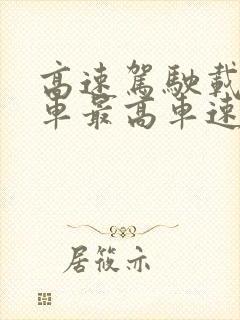 高速驾駛載
車最高車速
居筱亦